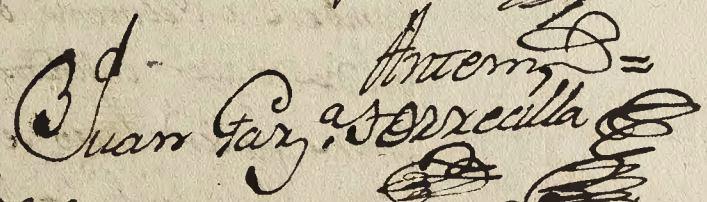 Antemj =
Juan Garz.ª Torrecilla